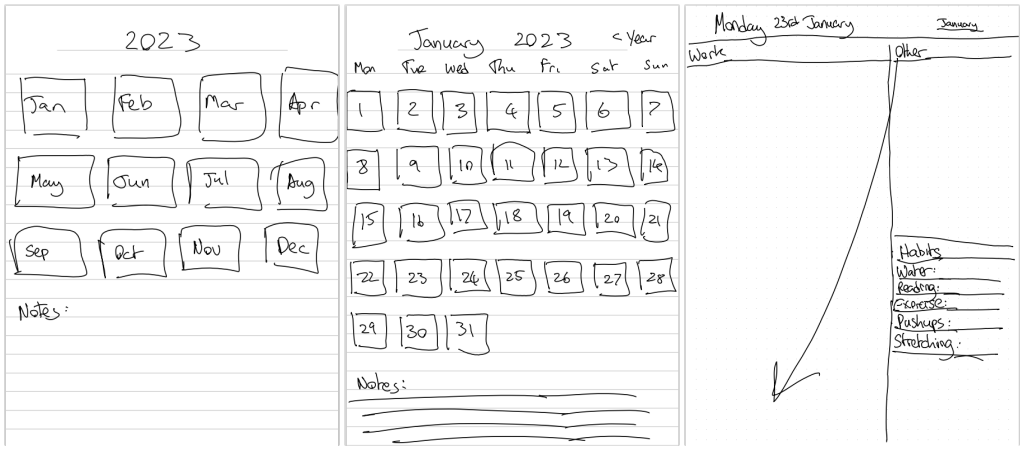 2023
Jan Feb Mar Apr
May Jun Jul Aug
Sep Oct Nov Dec
Notes:
January 2023 < Year
Mon Tue Wed Thu Fri Sat Sun
1 2 3 4 5 6 7
8 9 10 11 12 13 14
15 16 17 18 19 20 21
22 23 24 25 26 27 28
29 30 31
Notes:
Monday 23rd January January
Work Other
Habits
Water:
Reading:
Exercise:
Pushups:
Stretching: